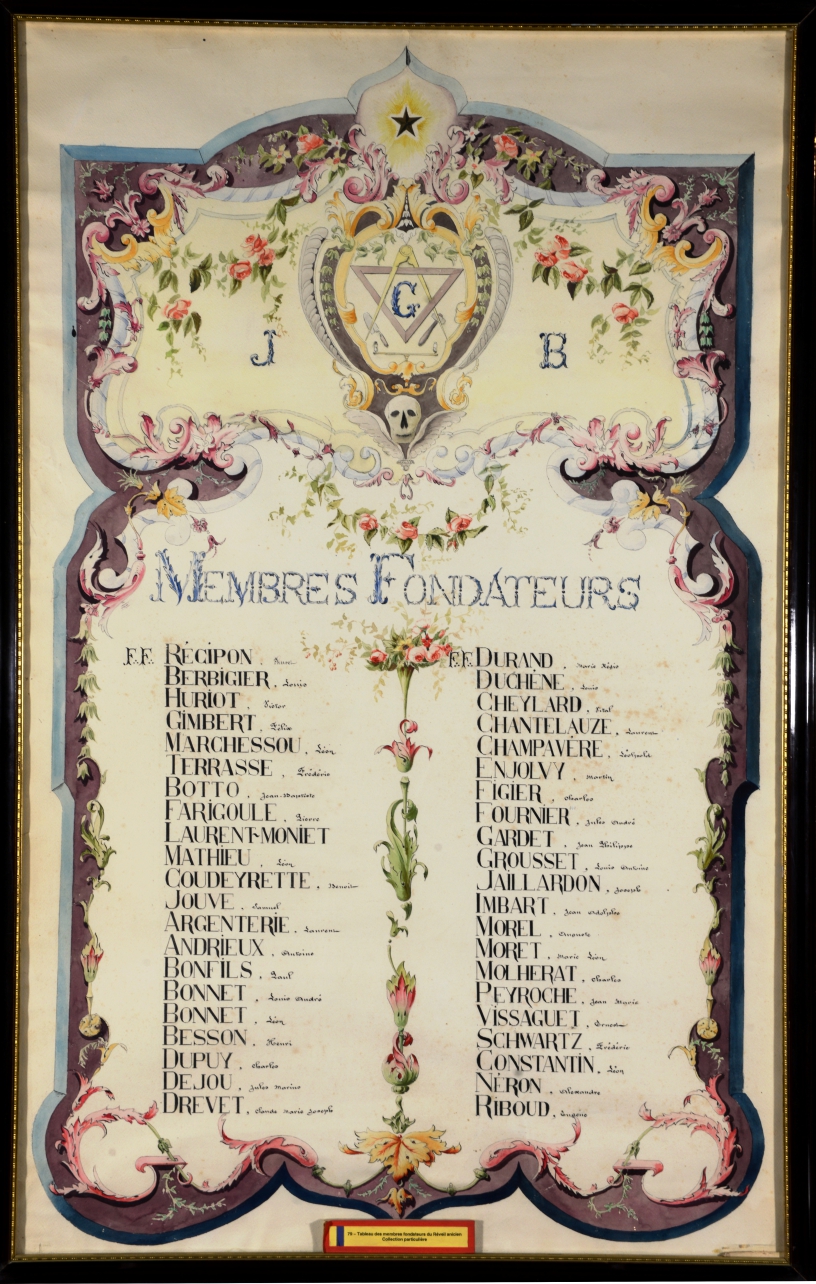 G
J
B
MEMBRES FONDATEURS
F.F. RÉCIPON,
BERBIGIER, Louis
HURIOT, Victor
GIMBERT, Félix
MARCHESSOU, Léon
TERRASSE, Frédéric
BOTTO, Jean-Baptiste
FARIGOULE, Pierre
LAURENT-MONIET
MATHIEU, Léon
COUDEYRETTE, Benoit
JOUVE, Samuel
ARGENTERIE, Laurent
ANDRIEUX, Antoine
BONFILS, Paul
BONNET, Louis André
BONNET, Léon
BESSON, Henri
DUPUY, Charles
DEJOU, Jules Marius
DREVET, Claude Marie Joseph
F.F. DURAND, Marie Régis
DUCHÊNE, Louis
CHEYLARD, Vital
CHANTELAUZE, Laurent
CHAMPAVÈRE, Léopold
ENJOLVY, Martin
FIGIER, Charles
FOURNIER, Jules André
GARDET, Jean Philippe
GROUSSET, Louis Antoine
JAILLARDON, Joseph
IMBART, Jean Adolphe
MOREL, Auguste
MORET, Marie Léon
MOLHERAT, Charles
PEYROCHE, Jean Marie
VISSAGUET, Ernest
SCHWARTZ, Frédéric
CONSTANTIN, Léon
NÉRON, Alexandre
RIBOUD, Eugène
79 - Tableau des membres fondateurs du Réveil anicien
Collection particulière